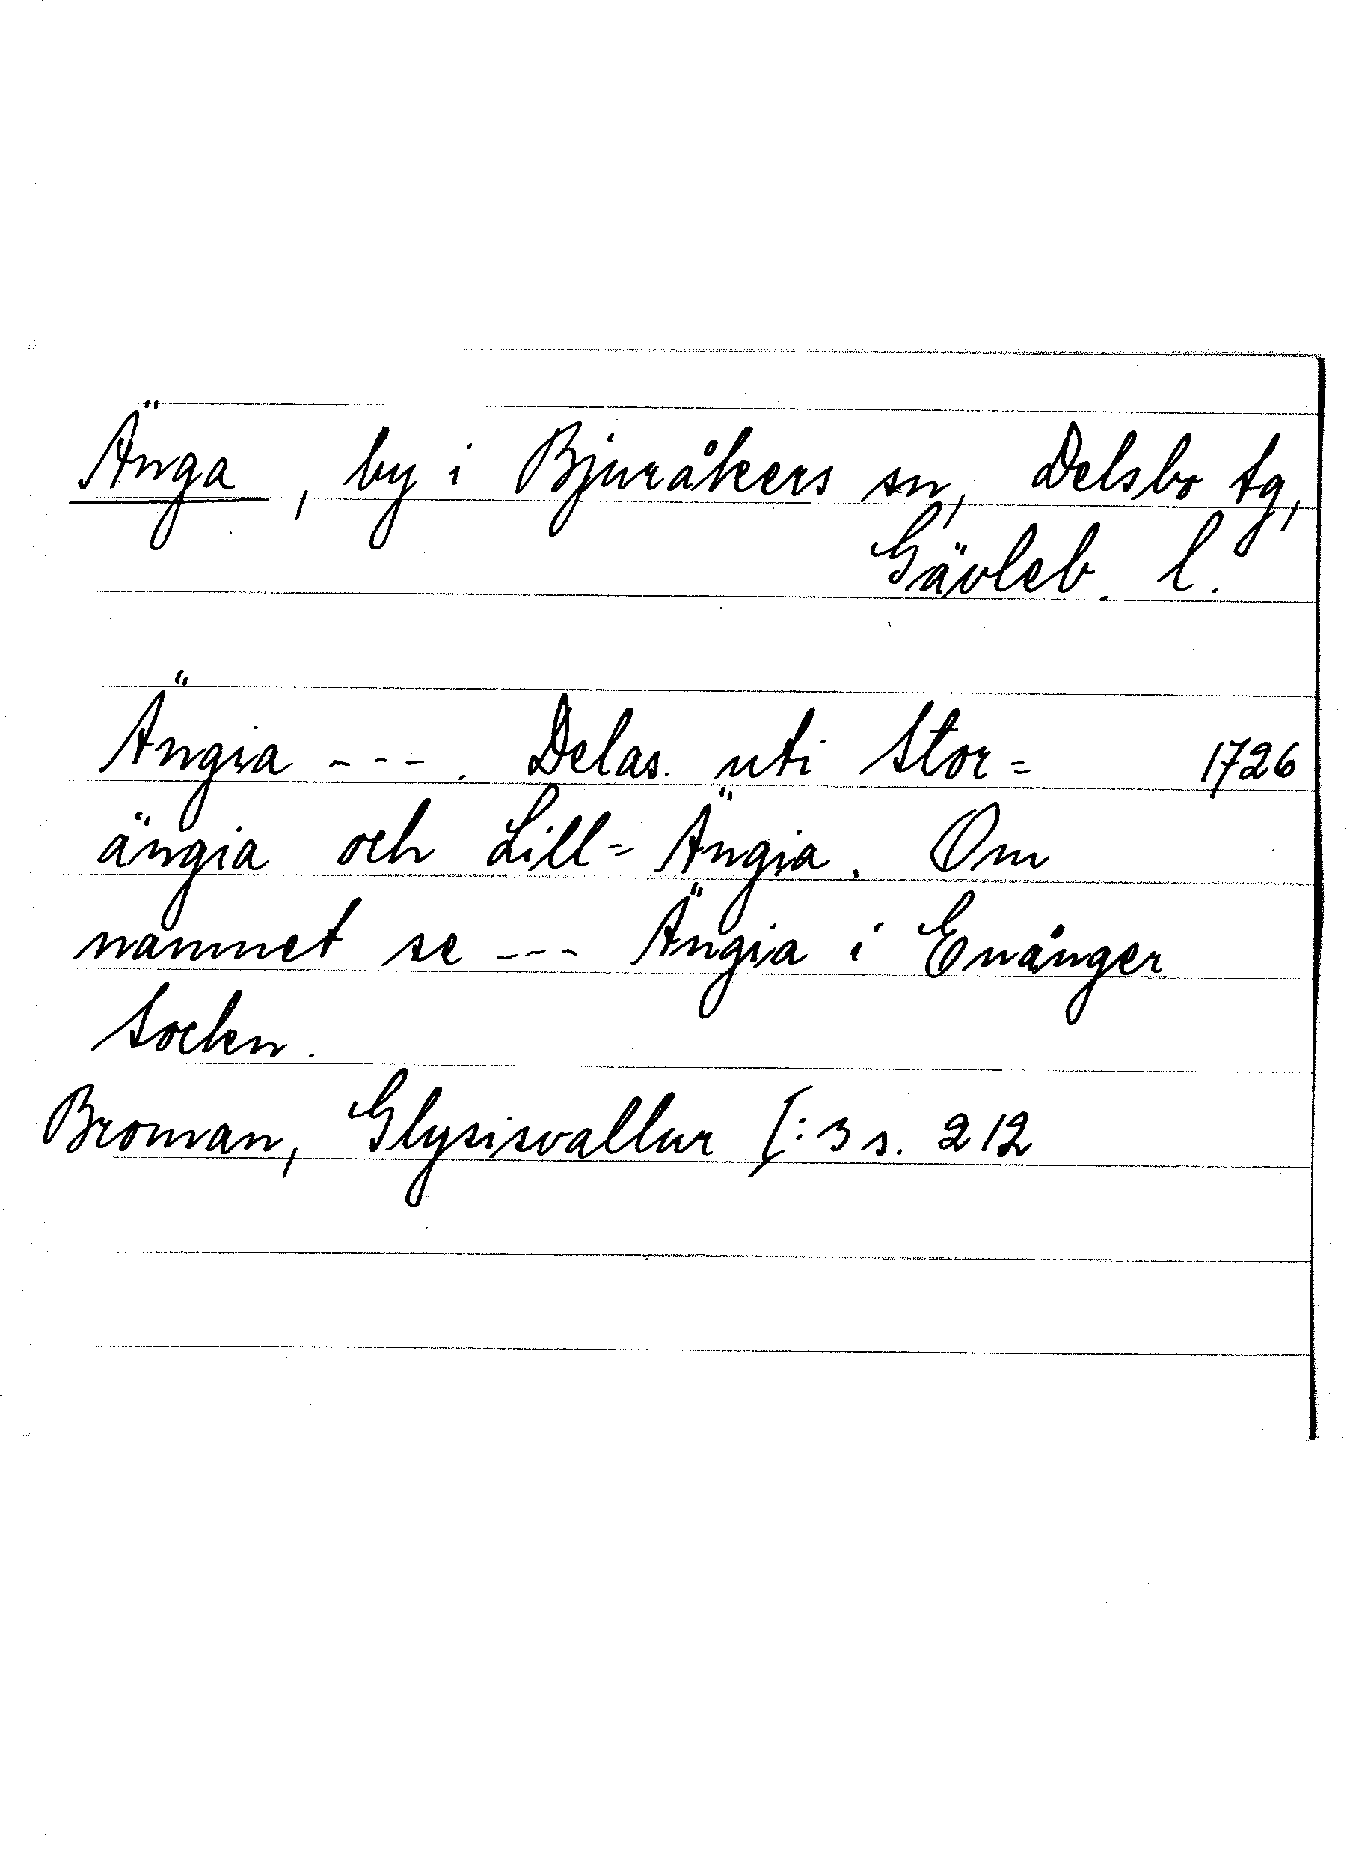 Änga, by i Bjuråkers sn, Delsbo tg,
Gävleb. l.
Ängia ---. Delas uti Stor= 1726
ängia och Lill=Ängia. Om
namnet se --- Ängia i Enånger
Socken.
Broman, Glysisvallur I:3 s. 212